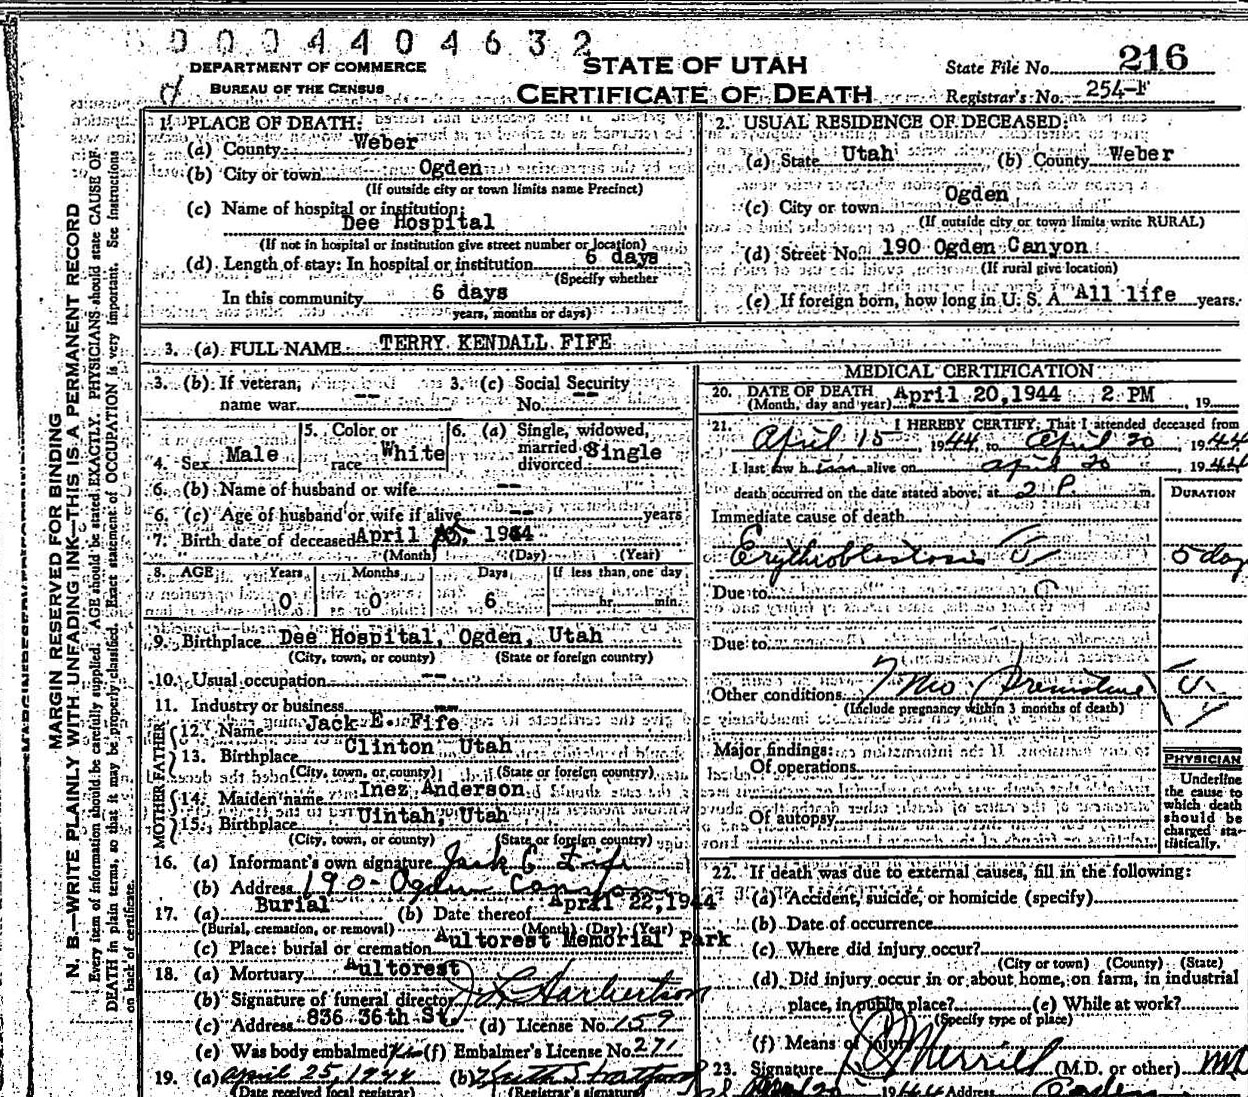 0004404632
DEPARTMENT OF COMMERCE
BUREAU OF THE CENSUS
STATE OF UTAH
CERTIFICATE OF DEATH
State File No. 216
Registrar's No. 254-F
MARGIN RESERVED FOR BINDING
N. B.—WRITE PLAINLY WITH UNFADING INK—THIS IS A PERMANENT RECORD
Every item of information should be carefully supplied. AGE should be stated EXACTLY. PHYSICIANS should state CAUSE OF
DEATH in plain terms, so that it may be properly classified. Exact statement of OCCUPATION is very important. See instructions
on back of certificate.
1. PLACE OF DEATH:
(a) County Weber
(b) City or town Ogden
(If outside city or town limits name Precinct)
(c) Name of hospital or institution:
Dee Hospital
(If not in hospital or institution give street number or location)
(d) Length of stay: In hospital or institution 6 days
(Specify whether
In this community 6 days
years, months or days)
2. USUAL RESIDENCE OF DECEASED:
(a) State Utah (b) County Weber
(c) City or town Ogden
(If outside city or town limits write RURAL)
(d) Street No. 190 Ogden Canyon
(If rural give location)
(e) If foreign born, how long in U. S. A. All life years.
3. (a) FULL NAME TERRY KENDALL FIFE
3. (b) If veteran, name war -- 3. (c) Social Security No. --
4. Sex Male 5. Color or race White 6. (a) Single, widowed, married divorced Single
6. (b) Name of husband or wife --
6. (c) Age of husband or wife if alive -- years
7. Birth date of deceased April 15, 1944
(Month) (Day) (Year)
8. AGE Years Months Days If less than one day
0 0 6 hr. min.
9. Birthplace Dee Hospital, Ogden, Utah
(City, town, or county) (State or foreign country)
10. Usual occupation --
11. Industry or business --
FATHER
12. Name Jack E. Fife
13. Birthplace Clinton Utah
(City, town, or county) (State or foreign country)
MOTHER
14. Maiden name Inez Anderson
15. Birthplace Uintah, Utah
(City, town, or county) (State or foreign country)
16. (a) Informant's own signature Jack E Fife
(b) Address 190- Ogden Canyon
17. (a) Burial (b) Date thereof April 22, 1944
(Burial, cremation, or removal) (Month) (Day) (Year)
(c) Place: burial or cremation Aultorest Memorial Park
18. (a) Mortuary Aultorest
(b) Signature of funeral director
(c) Address 836 36th St. (d) License No. 159
(e) Was body embalmed? (f) Embalmer's License No. 271
19. (a) April 25, 1944 (b)
(Date received local registrar) (Registrar's signature)
MEDICAL CERTIFICATION
20. DATE OF DEATH April 20, 1944 2 PM , 19
(Month, day and year)
21. I HEREBY CERTIFY, That I attended deceased from
April 15, 1944, to April 20, 1944
I last saw him alive on april 20, 1944
death occurred on the date stated above, at 2 P. m.
DURATION
Immediate cause of death
Erythroblastosis 5 day
Due to
Due to
Other conditions 7 mo. Premature
(Include pregnancy within 3 months of death)
Major findings:
Of operations
Of autopsy
PHYSICIAN
Underline
the cause to
which death
should be
charged sta-
tistically.
22. If death was due to external causes, fill in the following:
(a) Accident, suicide, or homicide (specify)
(b) Date of occurrence
(c) Where did injury occur?
(City or town) (County) (State)
(d) Did injury occur in or about home, on farm, in industrial
place, in public place? (e) While at work?
(Specify type of place)
(f) Means of injury
23. Signature Merrill (M.D. or other) MD
20 1944 Address Ogden